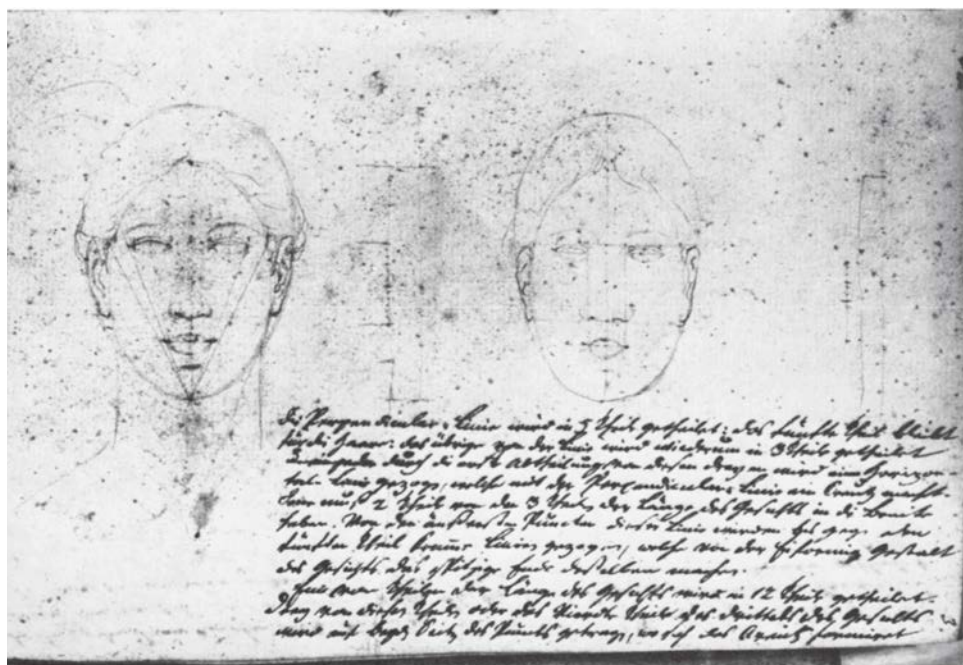 Die Perpendicular-Linie wird in 5 Theile getheilet: das fünfte Theil bleibt
für die Haare: das übrige von der Linie wird wiederum in 3 Theile getheilet
durch die erste Abtheilung von diesen dreyen wird eine Horizon-
tal-Linie gezogen, welche mit der Perpendicular-Linie ein Creutz macht.
Jene muß 2 Theile von den 3 Theilen der Länge des Gesichts in die Breite
haben. Von den äußersten Puncten dieser Linie werden bis
fünften Theil krumme Linien gezogen, welche von der Eiförmig Gestalt
des Gesichts das spitzige Ende desselben machen.
Eins von Theilen der Länge des Gesichts wird in 12 Theile getheilet.
drey von diesen Theilen, oder das Theil des Drittels des Gesichts
wird auf beyde Seiten des Puncts getragen, wo sich das Creutz formiret